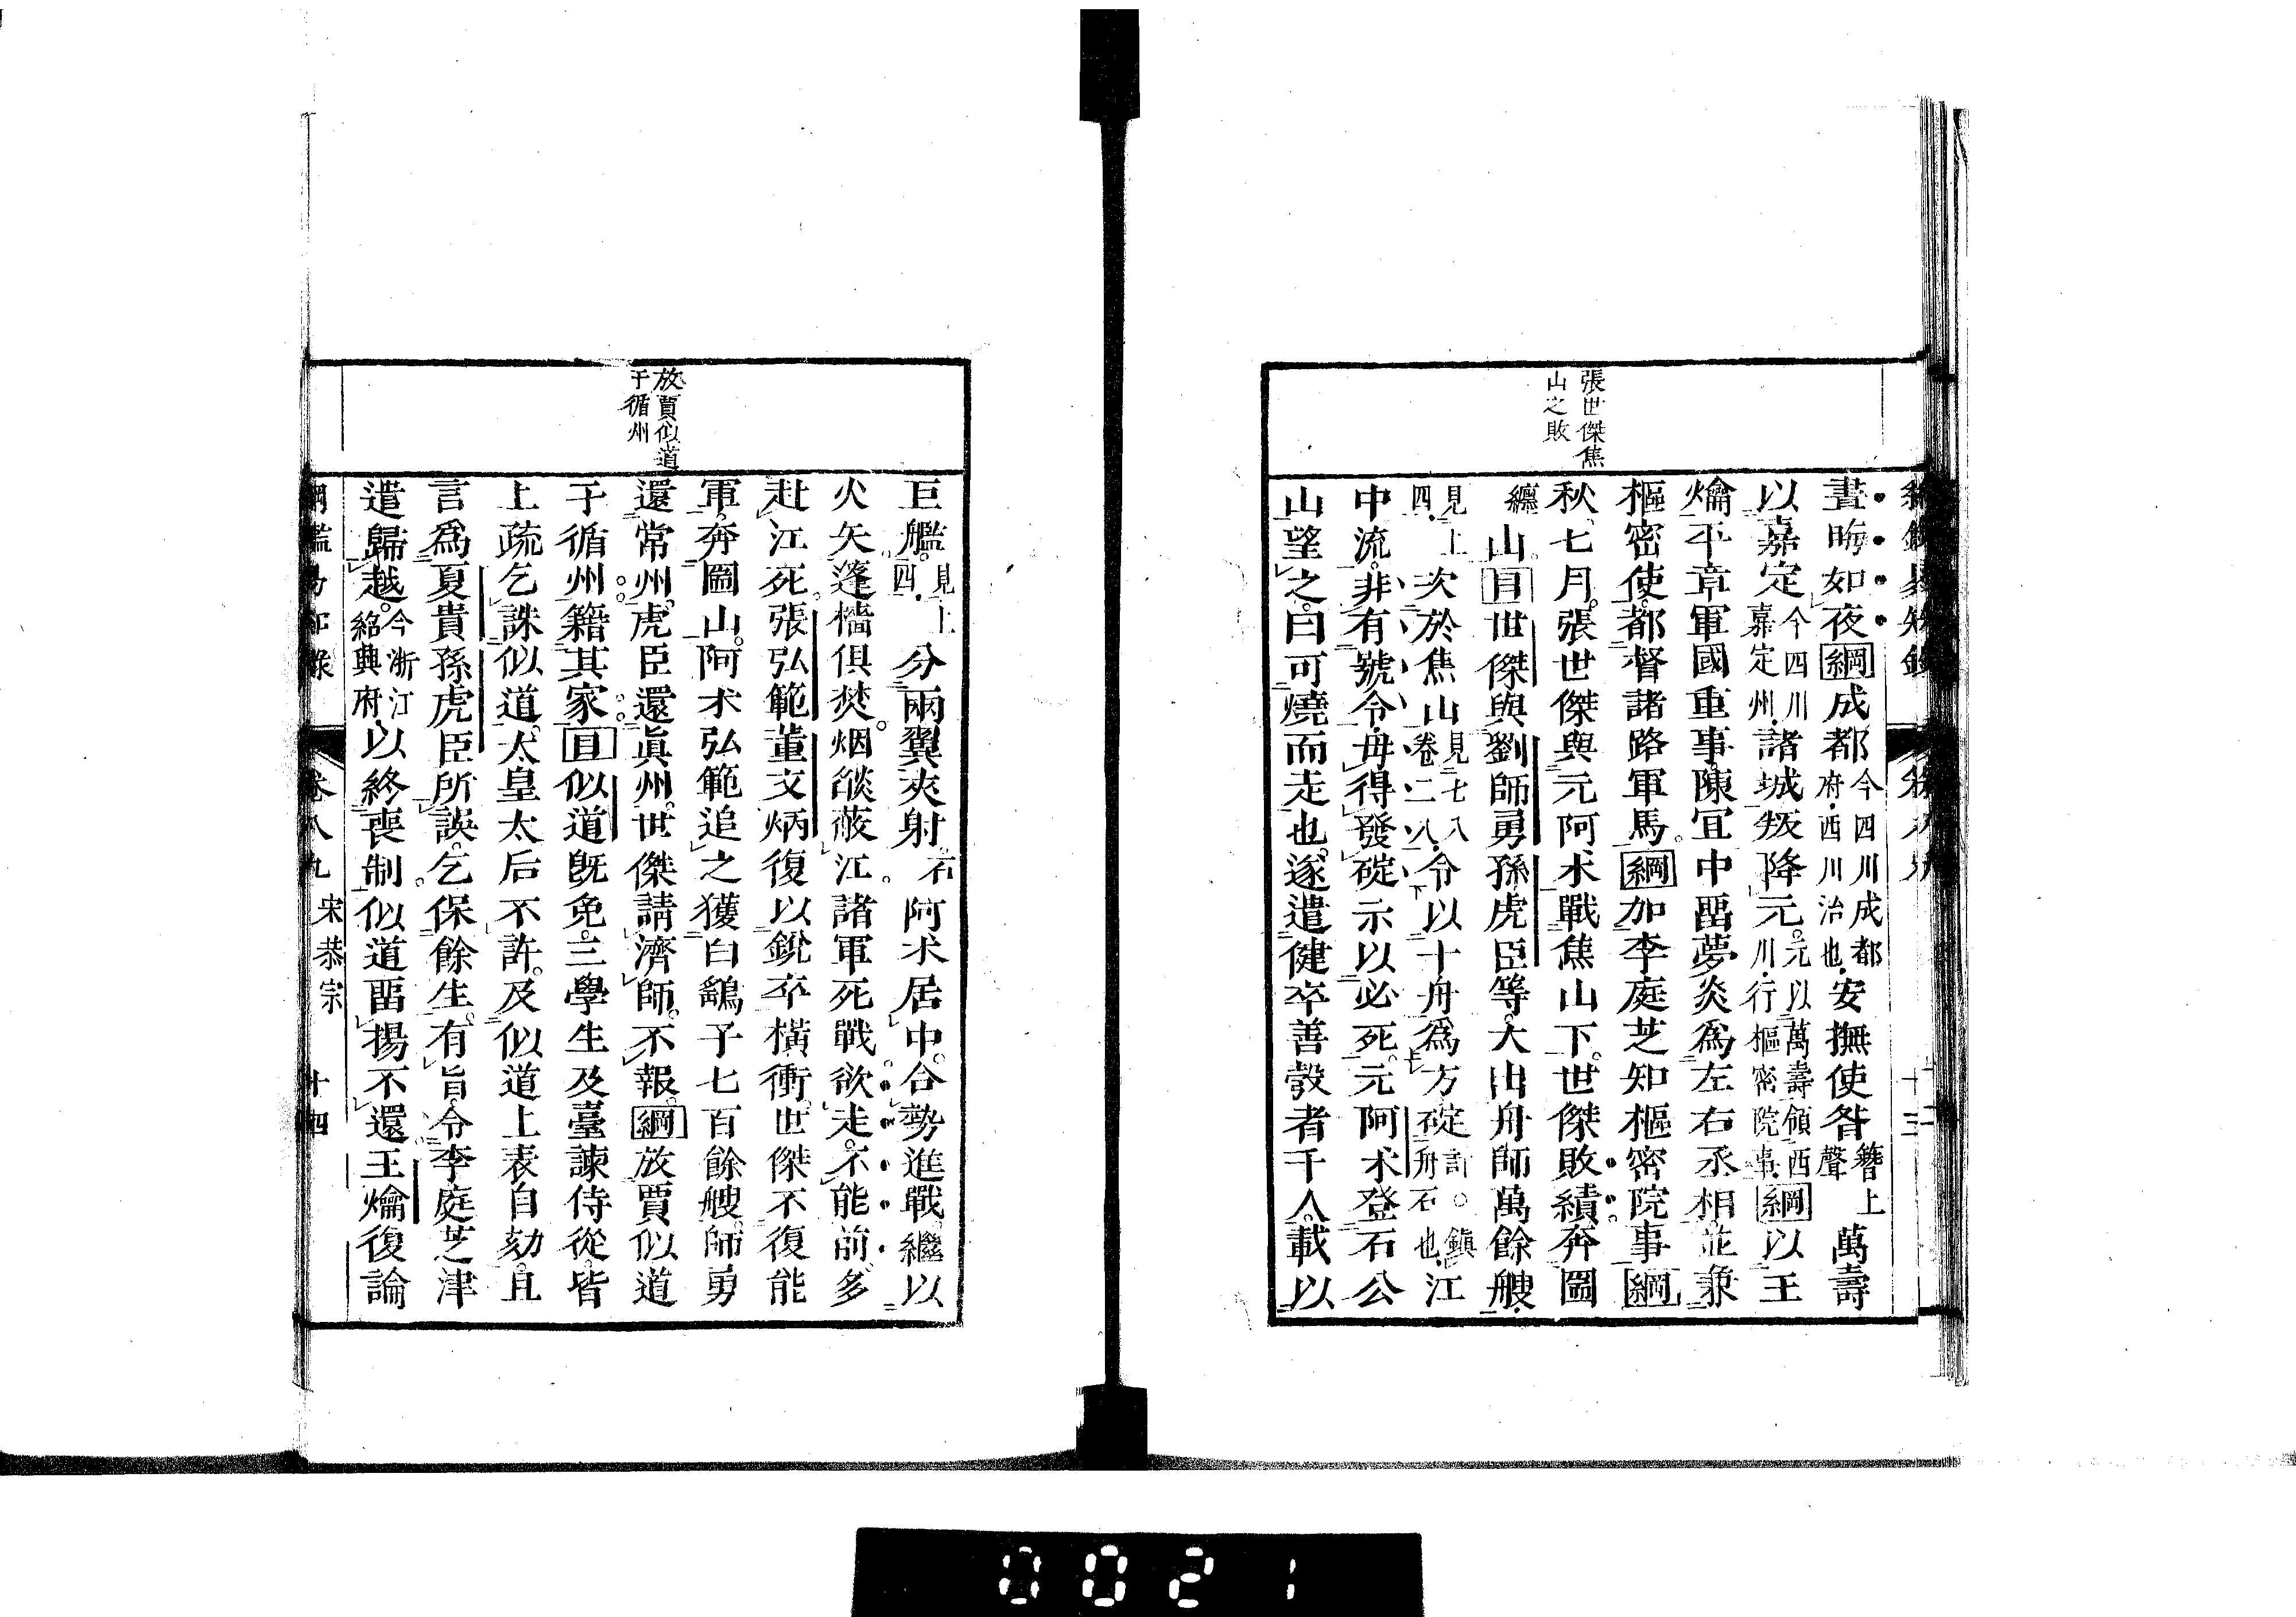 張世傑焦
山之敗
晝晦如夜綱成都今四川成都府西川治也安撫使昝簪上聲萬壽
以嘉定今四川嘉定州諸城叛降元元以萬壽領西川行樞密院事綱以王
爚平章軍國重事陳宜中畱夢炎爲左右丞相並兼
樞密使都督諸路軍馬綱加李庭芝知樞密院事綱
秋七月張世傑與元阿朮戰焦山下世傑敗績奔圌
山目世傑與劉師勇孫虎臣等大出舟師萬餘艘
見上四次於焦山見七八卷二八下令以十舟爲方碇訂鎭舟石也江
中流非有號令毋得發碇示以必死元阿朮登石公
山望之曰可燒而走也遂遣健卒善彀者千人載以
放賈似道
于循州
巨艦見上四分兩翼夾射石阿朮居中合勢進戰繼以
火矢蓬檣俱焚烟燄蔽江諸軍死戰欲走不能前多
赴江死張弘範董文炳復以銳卒橫衝世傑不復能
軍奔圌山阿朮弘範追之獲白鷂子七百餘艘師勇
還常州虎臣還眞州世傑請濟師不報綱放賈似道
于循州籍其家目似道旣免三學生及臺諫侍從皆
上疏乞誅似道太皇太后不許及似道上表自劾且
言爲夏貴孫虎臣所誤乞保餘生有旨令李庭芝津
遣歸越今浙江紹興府以終喪制似道畱揚不還王爚復論
卷八九 宋恭宗 十四